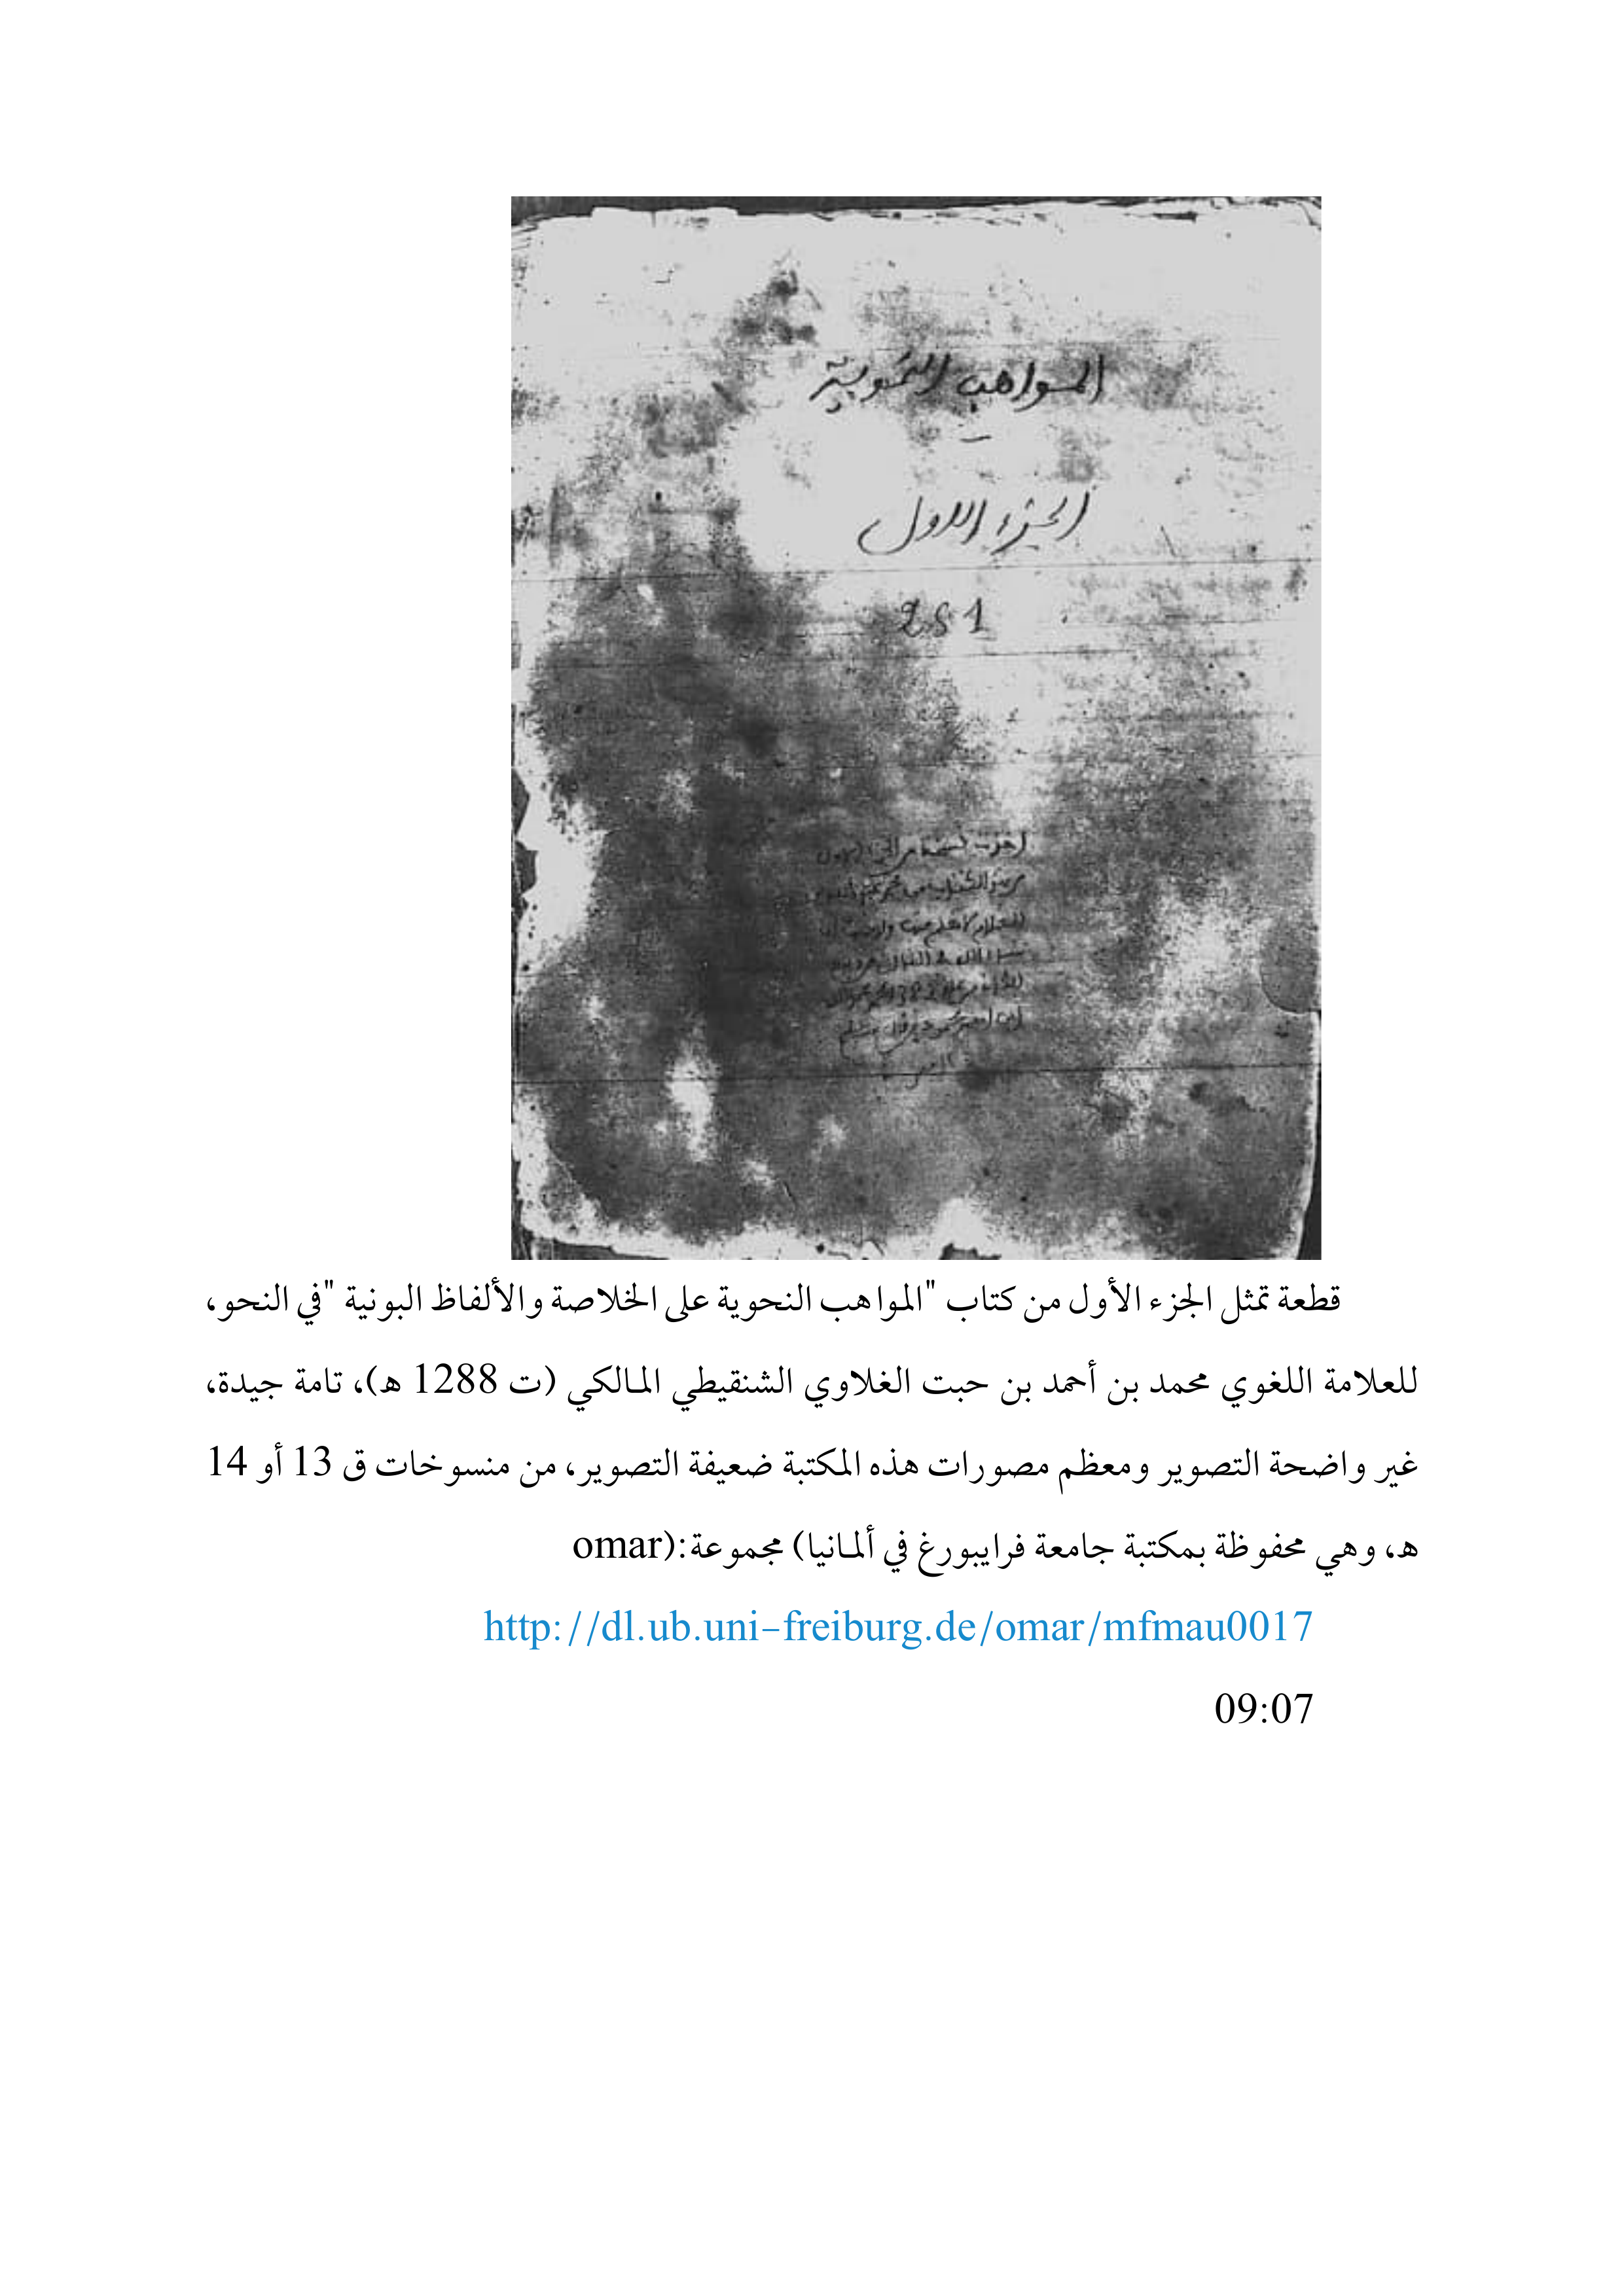 المواهب النحوية
الجزء الاول
251
قطعة تمثل الجزء الأول من كتاب "المواهب النحوية على الخلاصة والألفاظ البونية "في النحو،
للعلامة اللغوي محمد بن أحمد بن حبت الغلاوي الشنقيطي المالكي (ت 1288 ه)، تامة جيدة،
غير واضحة التصوير ومعظم مصورات هذه المكتبة ضعيفة التصوير، من منسوخات ق 13 أو 14
ه، وهي محفوظة بمكتبة جامعة فرايبورغ في ألمانيا) مجموعة:(omar
http://dl.ub.uni-freiburg.de/omar/mfmau0017
09:07